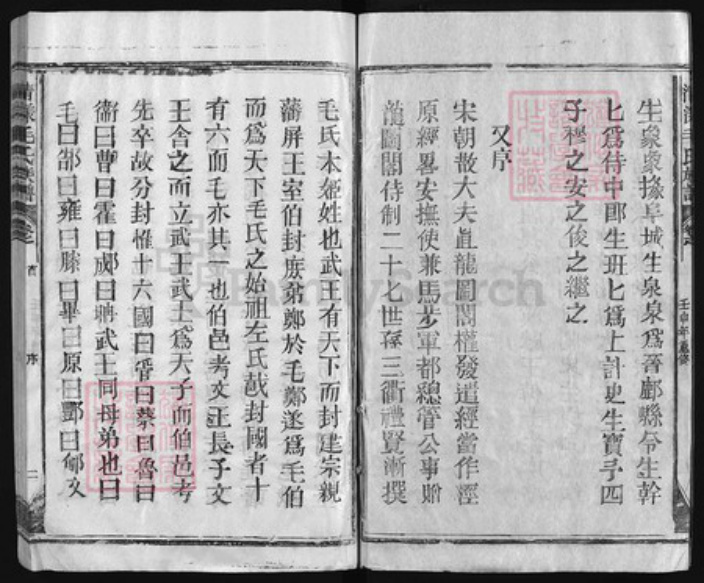 生衆衆掾阜城生泉泉爲晉鄌縣令生幹
匕爲侍中郎生班匕爲上計史生寶子四
子穆之安之俊之繼之
又序
宋朝散大夫直龍圖閣權發遣經當作涇
原經畧安撫使兼馬步軍都總管公事贈
龍圖閣待制二十七世孫三衢禮賢漸撰
毛氏本姬姓也武王有天下而封建宗親
藩屏王室伯封庻弟鄭於毛鄭遂爲毛伯
而爲天下毛氏之始祖左氏載封國者十
有六而毛亦其一也伯邑考文王長子文
王舍之而立武王武王爲天子而伯邑考
先卒故分封惟十六國曰管曰蔡曰魯曰
衞曰曹曰霍曰郕曰聃武王同母弟也曰
毛曰郜曰雍曰滕曰畢曰原曰酆曰郇文
清漾毛氏族譜
首
序
二
壬申年重修
FamilySearch